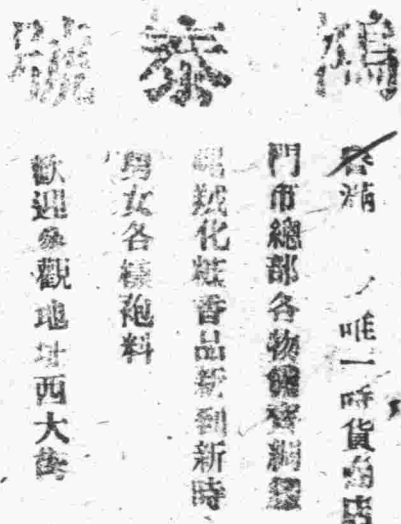 鴻泰號
滿 唯一時貨商店
門市總部各物備齊綢緞
絨化粧香品新到新時
男女各樣袍料
歡迎參觀地址西大街